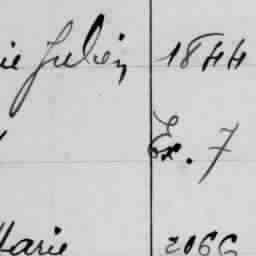 ie Julien 1844
Ex. 7
Marie 2066